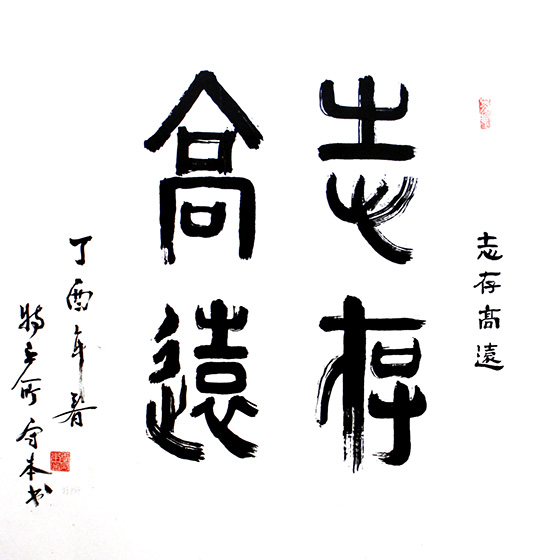 志存髙遠
志存
髙遠
丁酉年春
守本书